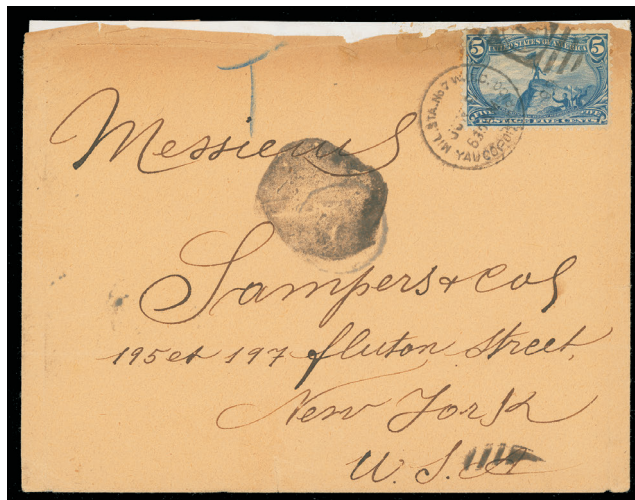 5 UNITED STATES OF AMERICA 5
POSTAGE FIVE CENTS
MIL. STA. No 7
YAUCO
T
Messieurs
Sampers & Co
195 et 197 fluton Street,
New York
U. S. A